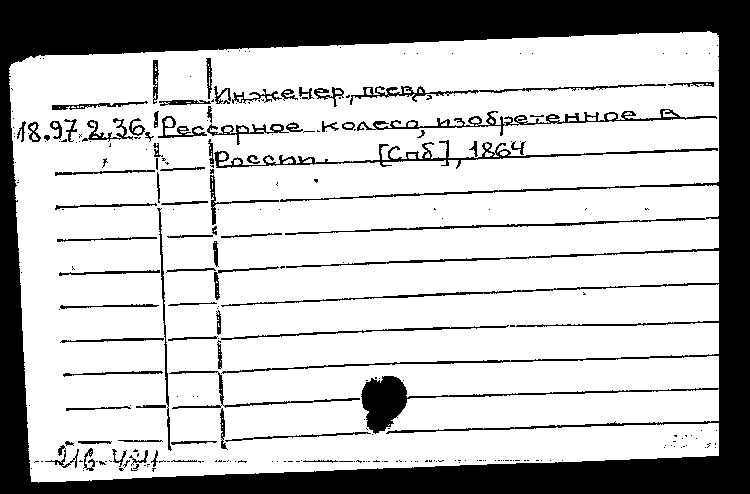 Инженер, псевд.
18.97.2.36. Рессорное колесо, изобретенное в
России. [Спб], 1864
216-484